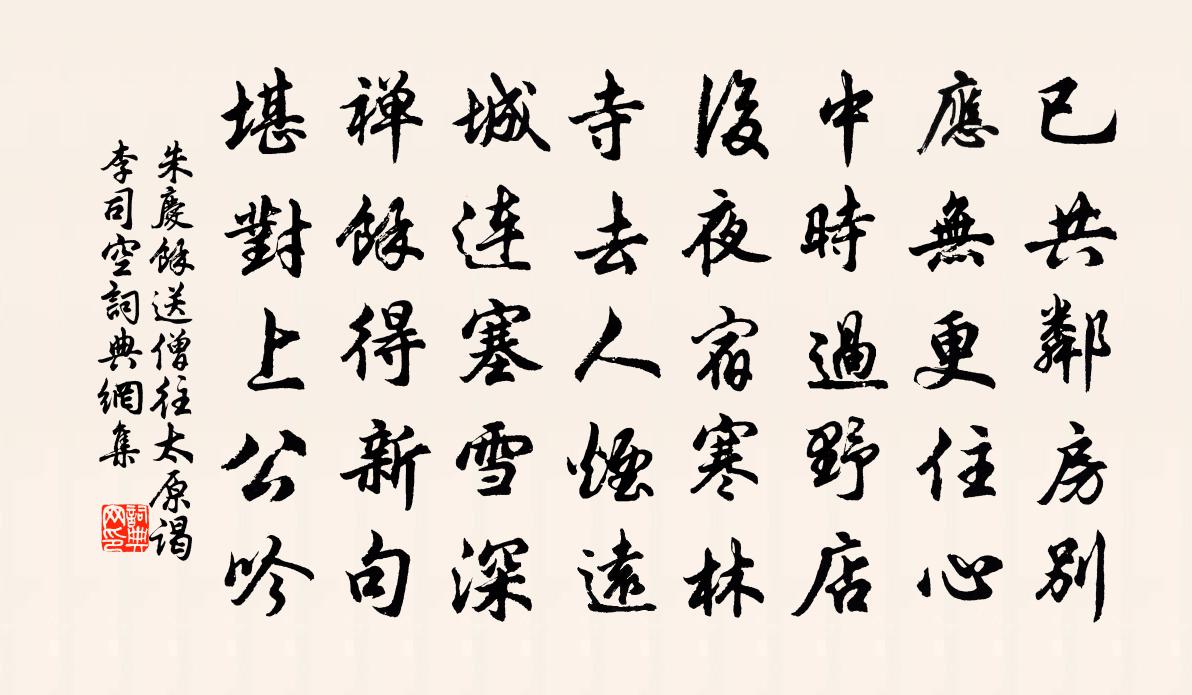 已共鄰房別
應無更住心
中時過野店
後夜宿寒林
寺去人煙遠
城連塞雪深
禅餘得新句
堪對上公吟
朱慶餘送僧往太原謁
李司空詞典網集
詞典
网印